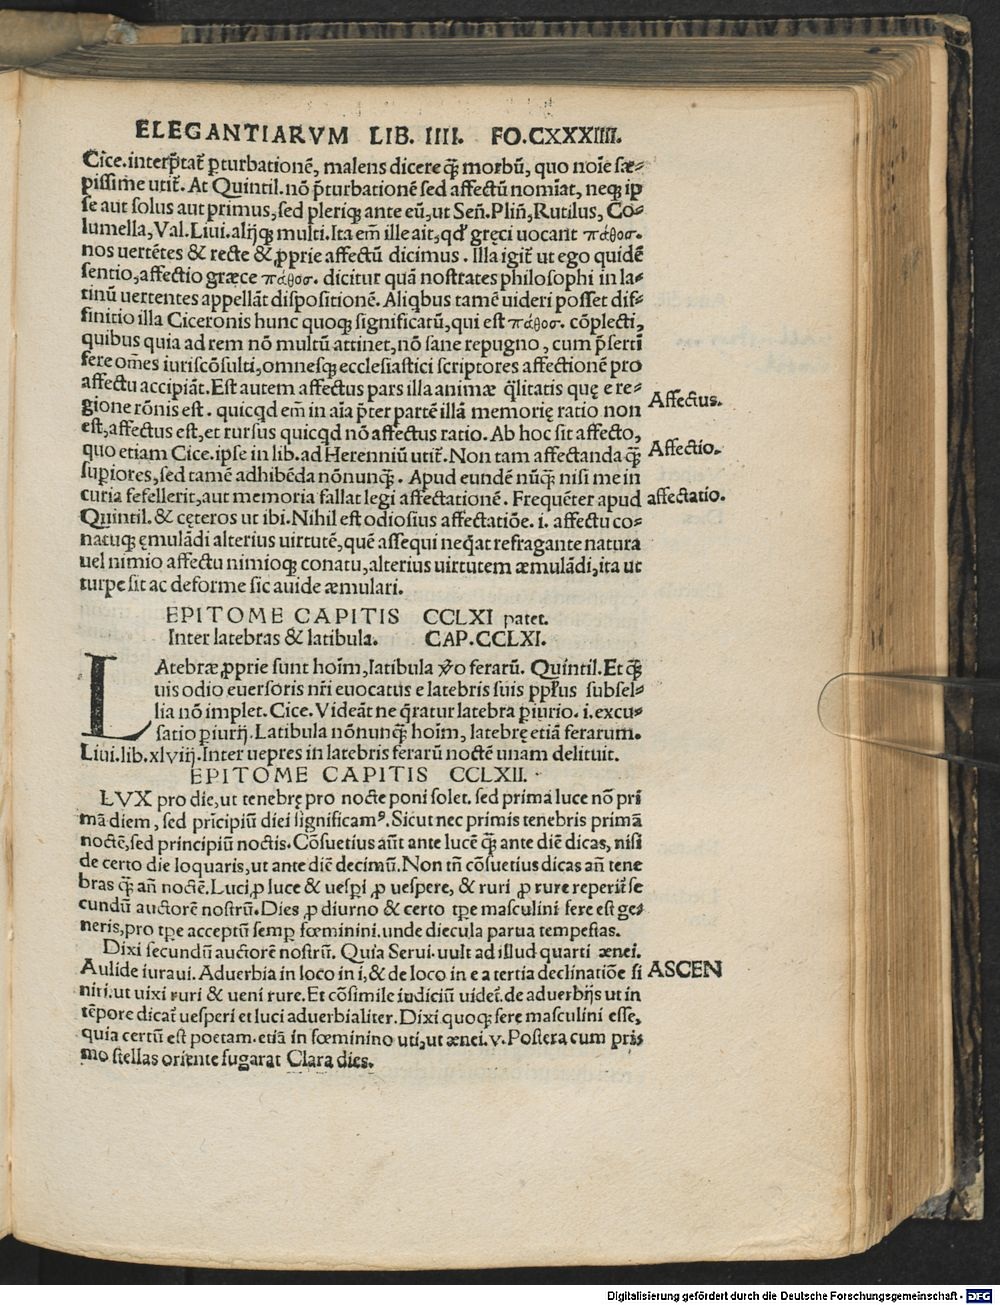 ELEGANTIARVM LIB. IIII. FO.CXXXIIII.
Cice.interp̃tat᷑ ꝑturbationẽ, malens dicere q̃ꝫ morbũ, quo noĩe sæ-
pissime utit᷑. At Quintil.nõ p̃turbationẽ sed affectũ nomĩat, neqꝫ ip
se aut solus aut primus, sed pleriqꝫ ante eũ, ut Señ. Pliñ, Rutilus, Co-
lumella, Val. Liui. alijqꝫ multi. Ita em̃ ille ait, qd̕ gręci uocant πάθοσ.
nos uertẽtes & recte & ꝓprie affectũ dicimus. Illa igit᷑ ut ego quidẽ
sentio, affectio græce πάθοσ. dicitur quã nostrates philosophi in la-
tinũ uertentes appellãt dispositionẽ. Aliqbus tamẽ uideri posset dif-
finitio illa Ciceronis hunc quoqꝫ significatũ, qui est πάθοσ. cõplecti,
quibus quia ad rem nõ multũ attinet, nõ sane repugno, cum p̃sertĩ
fere om̃es iuriscõsulti, omnesqꝫ ecclesiastici scriptores affectionẽ pro
affectu accipiãt. Est autem affectus pars illa animæ q̃litatis quę e re-
gione rõnis est. quicqd em̃ in aĩa p̃ter partẽ illã memorię ratio non
est, affectus est, et rursus quicqd nõ affectus ratio. Ab hoc sit affecto,
quo etiam Cice. ipse in lib. ad Herenniũ utit᷑. Non tam affectanda q̃ꝫ
suꝑiores, sed tamẽ adhibẽda nõnunq̃ꝫ. Apud eundẽ nũq̃ꝫ nisi me in
curia fefellerit, aut memoria fallat legi affectationẽ. Frequẽter apud
Quintil. & cęteros ut ibi. Nihil est odiosius affectatiõe. i. affectu co-
natuqꝫ ęmulãdi alterius uirtutẽ, quẽ assequi neq̃at refragante natura
uel nimio affectu nimioqꝫ conatu, alterius uirtutem æmulãdi, ita ut
turpe sit ac deforme sic auide æmulari.
Affectus.
Affectio.
affectatio.
EPITOME CAPITIS CCLXI patet.
Inter latebras & latibula. CAP.CCLXI.
LAtebræ ꝓprie sunt hoĩm, latibula ꝟo ferarũ. Quintil. Et q̃ꝫ
uis odio euersoris nr̃i euocatus e latebris suis subsel-
lia nõ implet. Cice. Videãt ne q̃ratur latebra ꝑiurio. i. excu-
satio ꝑiurij. Latibula nõnunq̃ꝫ hoĩm, latebrę etiã ferarum.
Liui. lib. xlviij. Inter uepres in latebris ferarũ noctẽ unam delituit.
EPITOME CAPITIS CCLXII.
LVX pro die, ut tenebrę pro nocte poni solet. sed prima luce nõ pri
mã diem, sed prĩcipiũ diei significamꝰ. Sicut nec primis tenebris primã
noctẽ, sed principiũ noctis. Cõsuetius aũt ante lucẽ q̃ꝫ ante diẽ dicas, nisi
de certo die loquaris, ut ante diẽ decimũ. Non tñ cõsuetius dicas añ tene
bras q̃ꝫ añ noctẽ. Luci ꝓ luce & uesꝑi ꝓ uespere, & ruri ꝓ rure reperit᷑ se
cundũ auctorẽ nostrũ. Dies ꝓ diurno & certo tꝑe masculini fere est ge-
neris, pro tꝑe acceptũ semꝑ fœminini. unde diecula parua tempestas.
Dixi secundũ auctorẽ nostrũ. Quia Serui. uult ad illud quarti ænei.
Aulide iuraui. Aduerbia in loco in i, & de loco in e a tertia declinatiõe si
niri. ut uixi ruri & ueni rure. Et cõsimile iudiciũ uidet᷑. de aduerbijs ut in
tẽpore dicat᷑ uesperi et luci aduerbialiter. Dixi quoqꝫ fere masculini esse,
quia certũ est poetam. etiã in fœminino uti, ut ænei. v. Postera cum pri-
mo stellas oriente fugarat Clara dies.
ASCEN
Digitalisierung gefördert durch die Deutsche Forschungsgemeinschaft - DFG